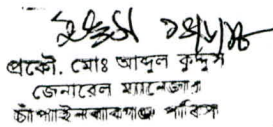 প্রকৌ. মোঃ আব্দুল কুদ্দুস
জেনারেল ম্যানেজার
চাঁপাইনবাবগঞ্জ পবিস